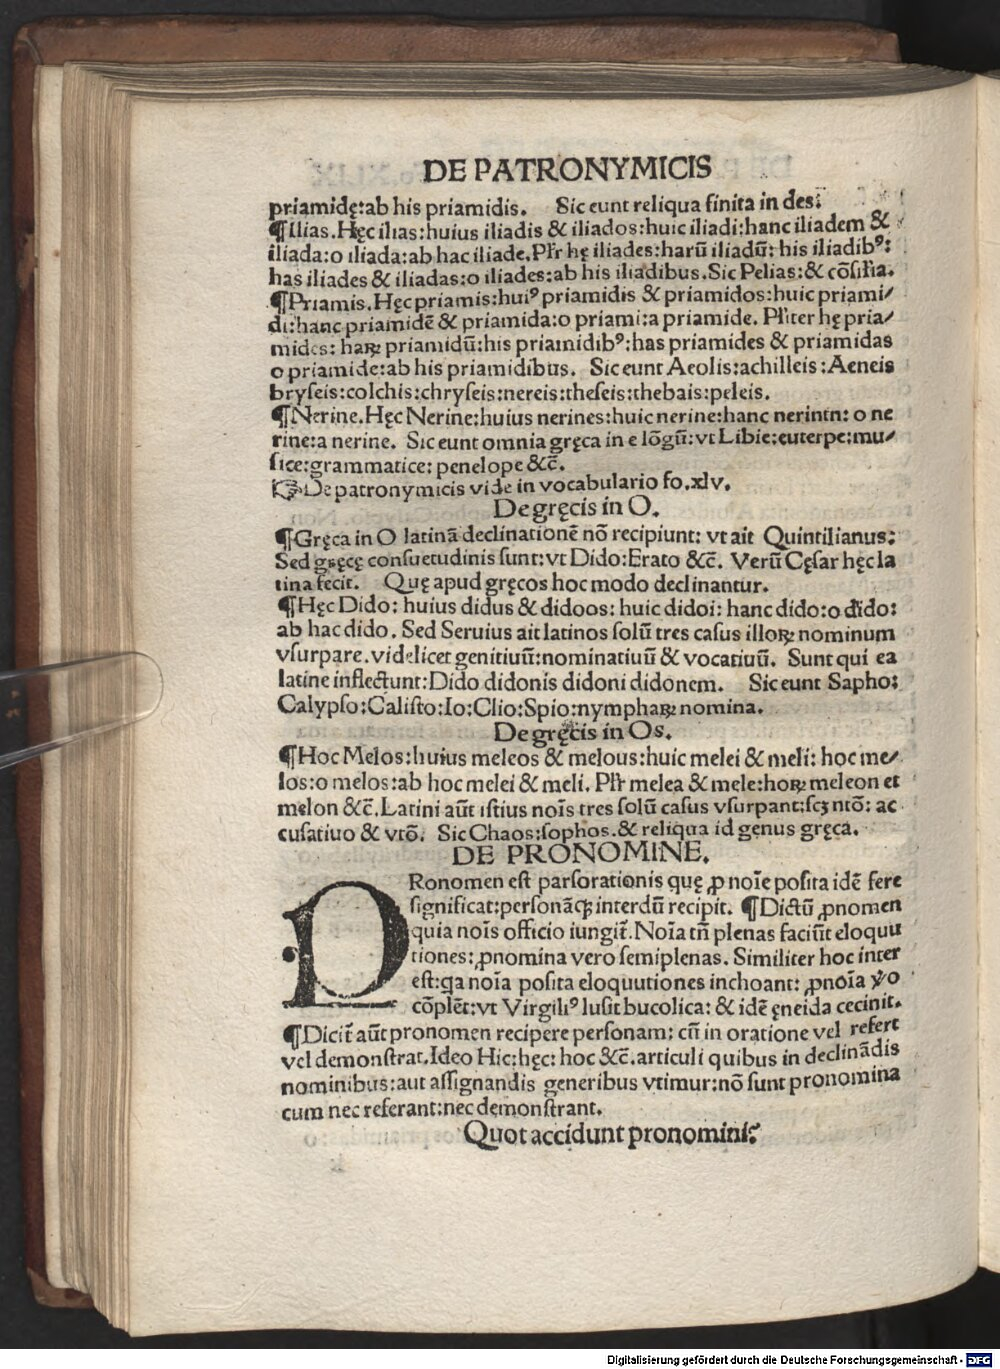 DE PATRONYMICIS
priamidę:ab his priamidis. Sic eunt reliqua finita in des:
¶Ilias. Hęc ilias:huius iliadis & iliados:huic iliadi:hanc iliadem &
iliada:o iliada:ab hac iliade. Plr̃ hę iliades:harū iliadū: his iliadibꝰ:
has iliades & iliadas:o iliades:ab his iliadibus. Sic Pelias:& cõsilia.
¶Priamis. Hęc priamis:huiꝰ priamidis & priamidos:huic priami/
di:hanc priamidẽ & priamida:o priami:a priamide. Plr̃iter hę pria/
mides: haꝝ priamidū:his priamidibꝰ:has priamides & priamidas
o priamide:ab his priamidibus. Sic eunt Aeolis:achilleis:Aeneis
bryſeis:colchis:chryſeis:nereis:theſeis:thebais:peleis.
¶Nerine. Hęc Nerine:huius nerines:huic nerine:hanc nerinen: o ne
rine:a nerine. Sic eunt omnia gręca in e lõgū:vt Libie:euterpe:mu/
ſice:grammatice: penelope &c̃.
☞De patronymicis vide in vocabulario fo.xlv.
De gręcis in O.
¶Gręca in O latinã declinationẽ nõ recipiunt: vt ait Quintilianus:
Sed gręcę conſuetudinis ſunt:vt Dido:Erato &c̃. Verū Cęſar hęc la
tina fecit. Quę apud gręcos hoc modo declinantur.
¶Hęc Dido: huius didus & didoos: huic didoi: hanc dido:o dido:
ab hac dido. Sed Seruius ait latinos ſolū tres caſus illoꝝ nominum
vſurpare. videlicet genitiuū:nominatiuū & vocatiuū. Sunt qui ea
latine inflectunt:Dido didonis didoni didonem. Sic eunt Sapho:
Calypſo:Caliſto:Io:Clio:Spio:nymphaꝝ nomina.
De gręcis in Os.
¶Hoc Melos:huius meleos & melous:huic melei & meli: hoc me/
los:o melos:ab hoc melei & meli. Plr̃ melea & mele:hoꝝ meleon et
melon &c̃. Latini aūt iſtius noīs tres ſolū caſus vſurpant:ſcꝫ ntõ: ac
cuſatiuo & vtõ. Sic Chaos:ſophos.& reliqua id genus gręca.
DE PRONOMINE.
PRonomen eſt parsorationis quę ꝓ noīe poſita idẽ fere
ſignificat:perſonãqꝫ interdū recipit. ¶Dictū ꝓnomen
quia noīs officio iungit̃. Noīa tñ plenas faciūt eloquu
tiones: ꝓnomina vero ſemiplenas. Similiter hoc inter
eſt:qa noīa poſita eloquutiones inchoant: ꝓnoīa ỽo
cõplẽt:vt Virgiliꝰ luſit bucolica: & idẽ ęneida cecinit.
¶Dicit̃ aūt pronomen recipere perſonam: cū in oratione vel refert
vel demonſtrat. Ideo Hic:hęc: hoc &c̃.articuli quibus in declinãdis
nominibus:aut aſſignandis generibus vtimur:nõ ſunt pronomina
cum nec referant:nec demonſtrant.
Quot accidunt pronomini?
Digitalisierung gefördert durch die Deutsche Forschungsgemeinschaft - DFG